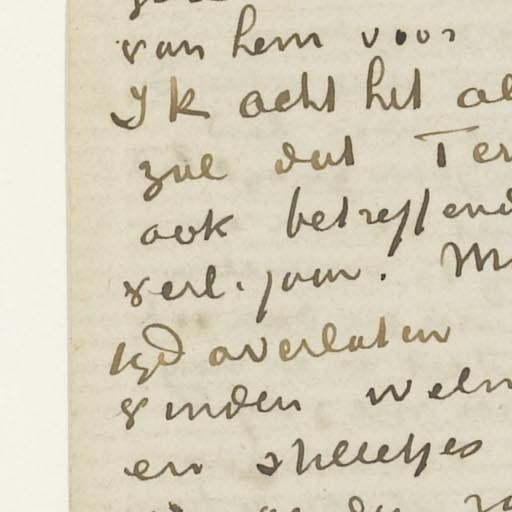 van hem voor
Ik acht het al
zal dat Ter
ook betreffend
verl. jaar. M
tyd overlaten
vinden weln
en stilletjes